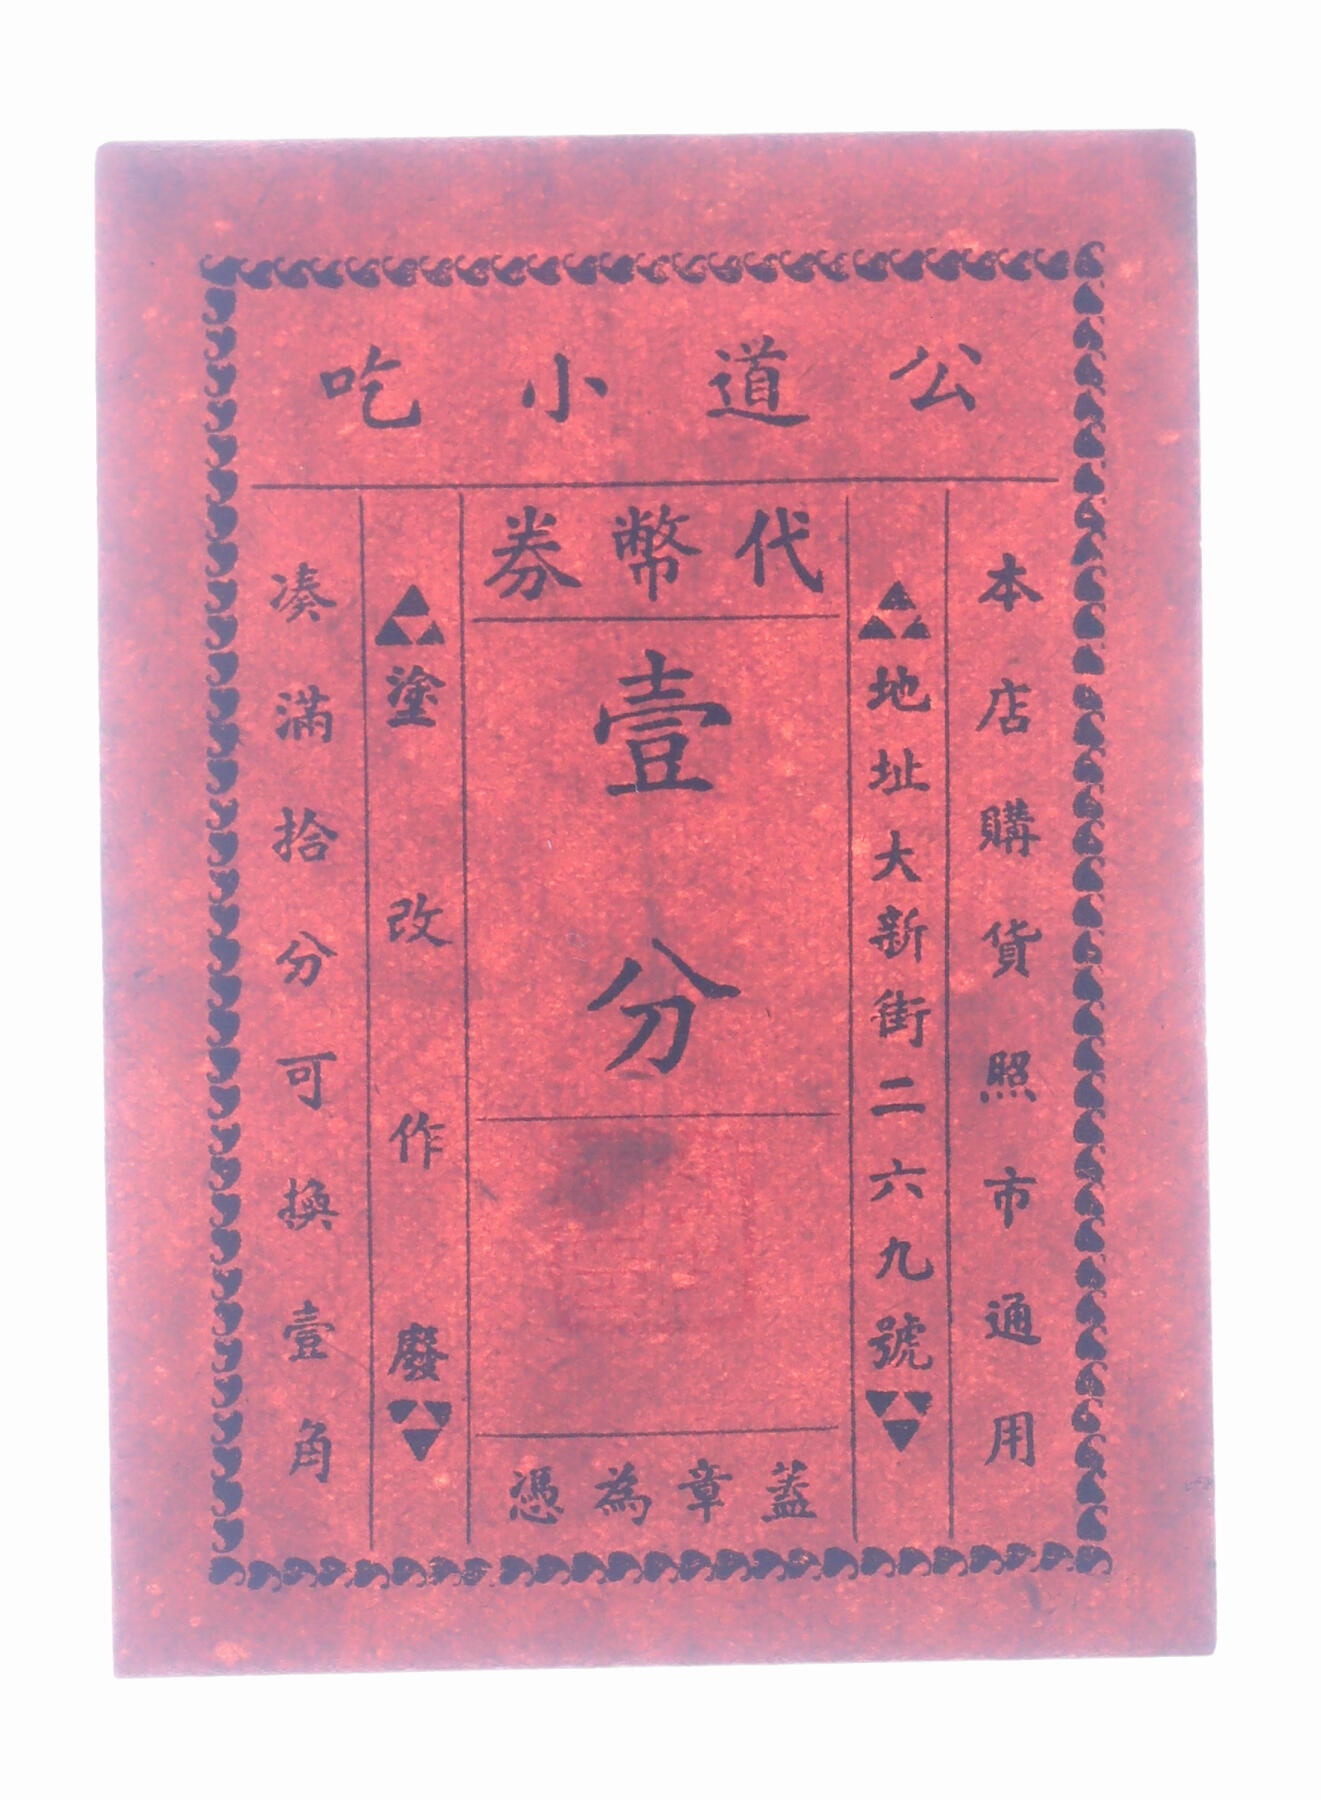 公道小吃
本店購貨照市通用
地址大新街二六九號
代幣券
壹分
蓋章為憑
塗改作廢
凑滿拾分可換壹角